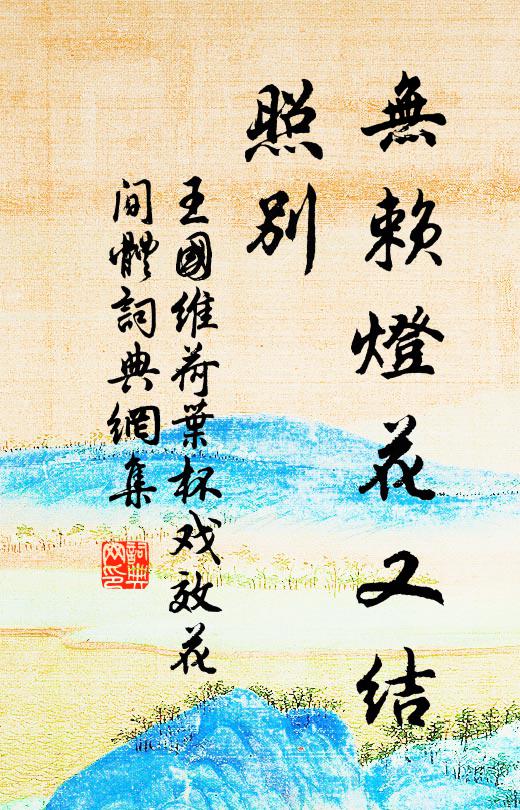 無賴燈花又結
照别
王國維荷葉杯戏效花
间體詞典網集
詞典
网印